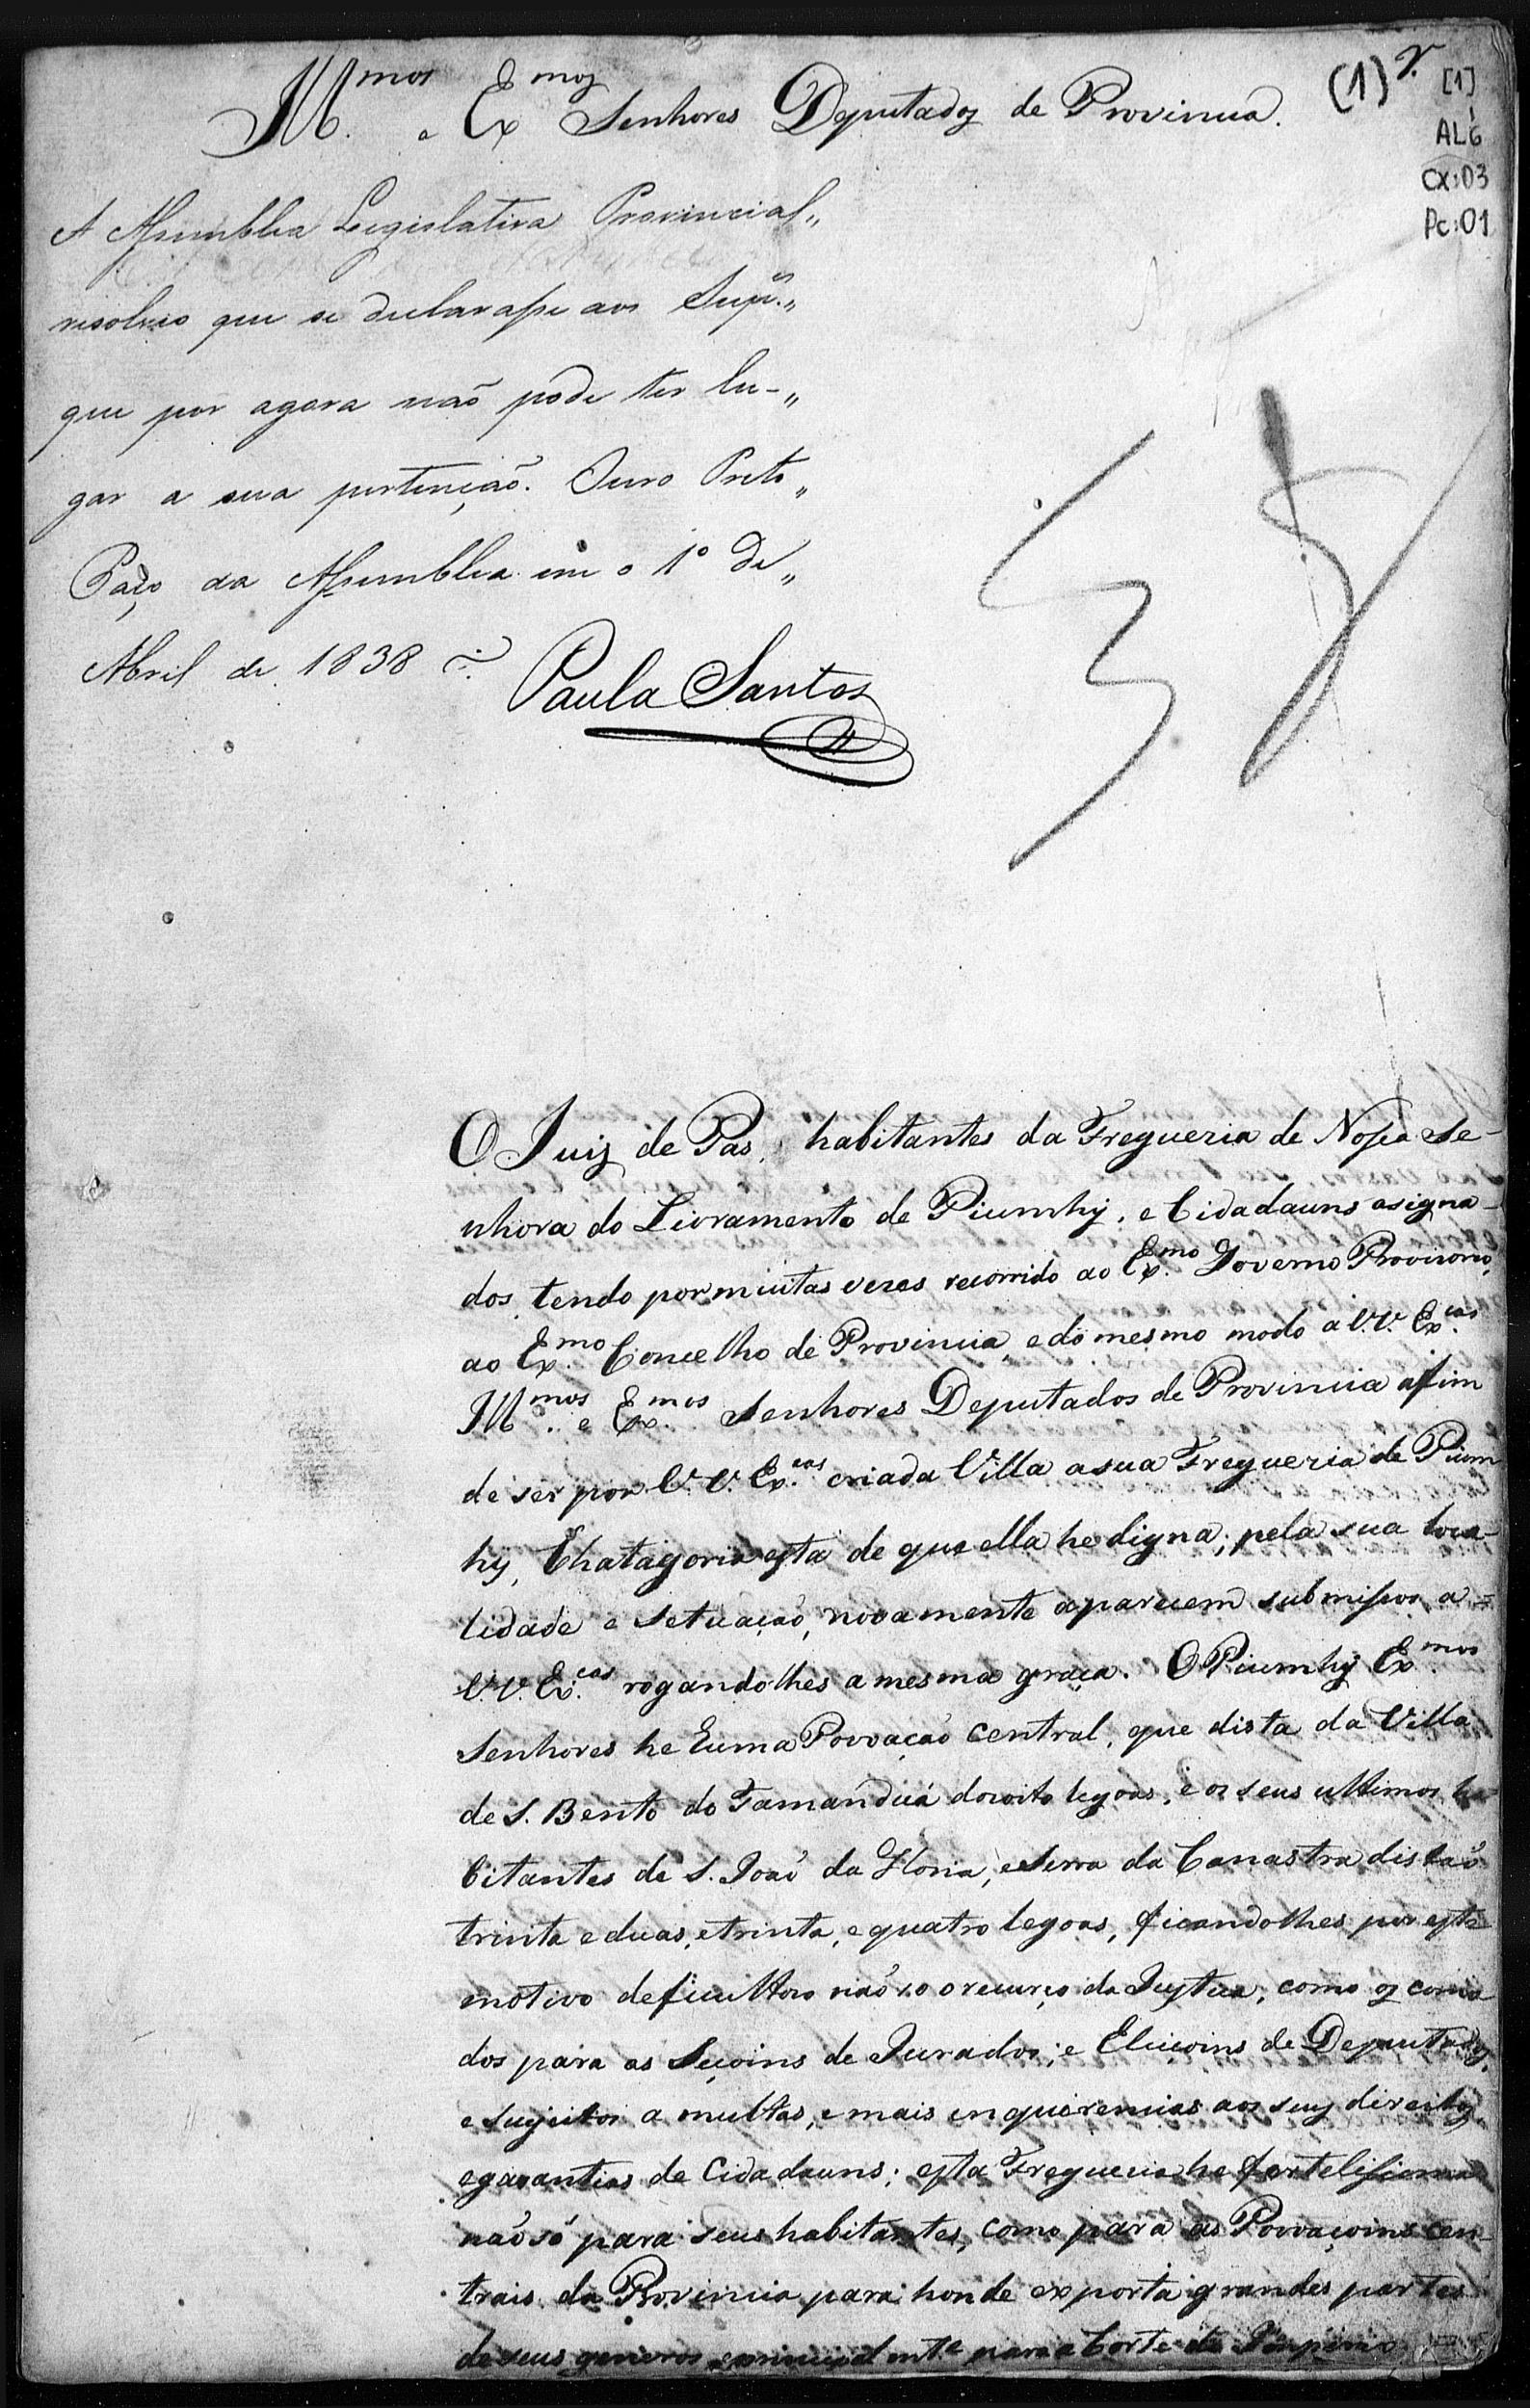 Ill.mos e Ex.mos Senhores Deputados de Provincia.
(1) r.
[1]
AL6
CX:03
Pc:01
A Assemblea Legislativa Provincial„
resolveo que se declarasse aos Supp.es„
que por agora não pode ter lu-„
gar a sua pertenção. Ouro Preto„
Paço da Assemblea em o 1º de„
Abril de 1838
Paula Santos
38
O Juiz de Pas, habitantes da Fregueria de Nossa Se-
nhora do Livramento de Piumhy, e Cidadauns asigna-
dos tendo por muitas vezes recorrido ao Ex.mo Governo Provisorio,
ao Ex.mo Concelho de Provincia, e do mesmo modo a V.V. Ex.cas
Ill.mos e Ex.mos Senhores Deputados de Provincia afim
de ser por V.V. Ex.cas criada Villa a sua Fregueria de Pium
hy, Chatagoria esta de que ella he digna; pela sua loca-
lidade e setuação, novamente aparecem submissos, a=
V.V. Ex.cas rogandolhes a mesma graça. O Piumhy Ex.mos
Senhores he huma Povoação central, que dista da Villa
de S. Bento do Tamanduá dozoito legoas, e os seus ultimos ha
bitantes de S. João da Gloria, e Serra da Canastra distaõ
trinta e duas, e trinta, e quatro legoas, ficandolhes por este
motivo deficultozo não só o recurço da Justica, como os
dos para as Seçoins de Jurados, e Eleicoins de Deputados,
e sugeitos a multas, e mais inquirencias aos seus direitos,
e garantias de Cidadauns; esta Freguecia he fertelissima
não só para seus habitantes, como para as Povoaçoins cen-
trais da Provincia para honde exporta grandes partes
de seus generos e principalmt.e para a Corte do Imperio